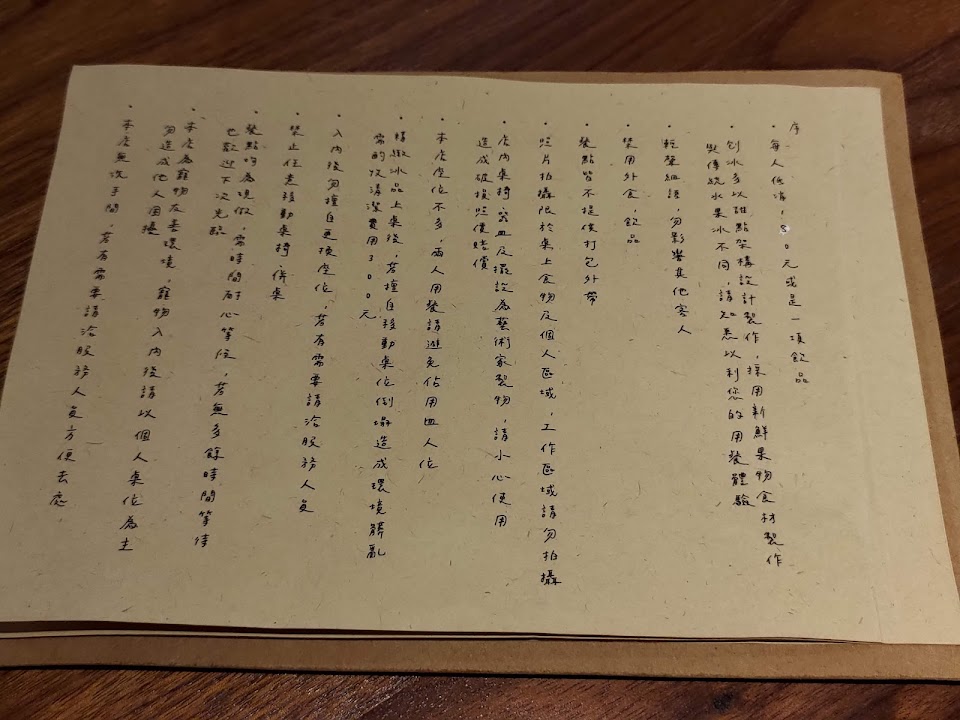 序
・每人低消180元或是一項飲品
・刨冰多以甜點架構設計製作，採用新鮮果物食材製作
與傳統水果冰不同，請知悉以利您的用餐體驗
・輕聲細語，勿影響其他客人
・禁用外食，飲品
・餐點皆不提供打包外帶
・照片拍攝限於桌上食物及個人區域，工作區域請勿拍攝
・店內桌椅，器皿及擺設為藝術家製物，請小心使用
造成破損照價賠償
・本店座位不多，兩人用餐請避免佔用四人位
・精緻冰品上桌後，若擅自移動桌位倒塌造成環境髒亂
需酌收清潔費用300元
・入內後勿擅自更換座位，若有需要請洽服務人員
・禁止任意移動桌椅併桌
・餐點均為現做，需時間耐心等候，若無多餘時間等待
也歡迎下次光臨
・本店為寵物友善環境，寵物入內後請以個人桌位為主
勿造成他人困擾
・本店無洗手間，若有需要請洽服務人員方便去處